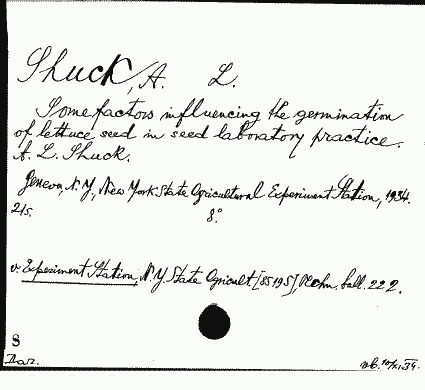 Shuck, A. L.
Some factors influencing the germination
of lettuce seed in seed laboratory practice.
A. L. Shuck.
Geneva, N. Y., New York State Agricultural Experiment Station, 1934.
21s. 8°.
v. Experiment Station, N. Y. State Agricult. [85195], Techn. bull. 222.
8